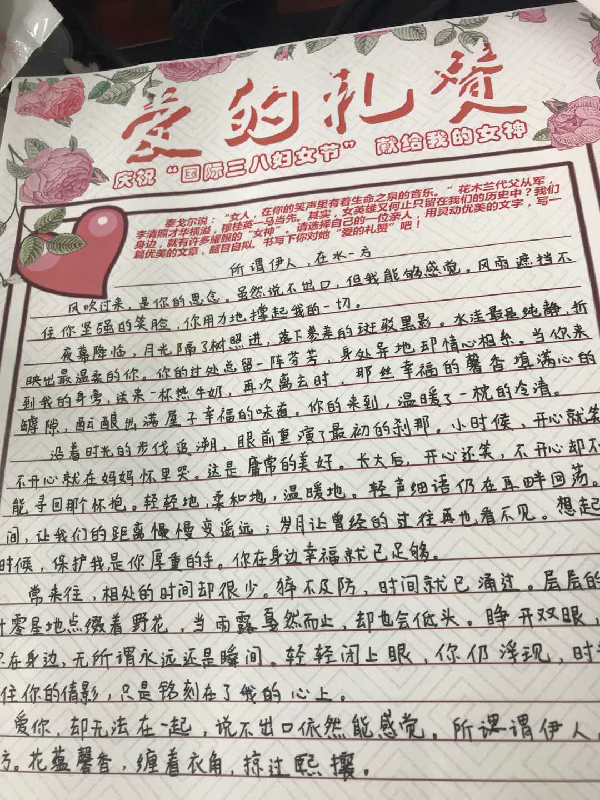 爱的礼赞
庆祝“国际三八妇女节” 献给我的女神
泰戈尔说：“女人，在你的笑声里有着生命之泉的音乐。”花木兰代父从军，
李清照才华横溢，穆桂英一马当先。其实，女英雄又何止只留在我们的历史中？我们
身边，就有许多耀眼的“女神”。请选择自己的一位亲人，用灵动优美的文字，写一
篇优美的文章，题目自拟。书写下你对她“爱的礼赞”吧！
所谓伊人 在水一方
风吹过来，是你的思念。虽然说不出口，但我能够感觉。风雨遮挡不
住你坚强的笑脸，你用力地撑起我的一切。
夜幕降临，月光隔了树照进，落下参差的斑驳黑影。水洼最是纯静，折
映出最温柔的你。你的过处总留一阵芬芳，身处异地却情心相系。当你来
到我的身旁，送来一杯热牛奶，再次离去时，那丝幸福的馨香填满心的
罅隙，酝酿出满屋子幸福的味道。你的来到，温暖了一枕的冷清。
沿着时光的步伐追溯，眼前重演了最初的刹那。小时候，开心就笑
不开心就在妈妈怀里哭。这是庸常的美好。长大后，开心还笑，不开心却不
能寻回那个怀抱。轻轻地，柔和地，温暖地。轻声细语仍在耳畔回荡。
间，让我们的距离慢慢变遥远；岁月让曾经的过往再也看不见。想起
时候，保护我是你厚重的手。你在身边幸福就已足够。
常来往，相处的时间却很少。猝不及防，时间就已涌过。层层的
零星地点缀着野花，当雨露戛然而止，却也会低头。睁开双眼，
在身边，无所谓永远还是瞬间。轻轻闭上眼，你仍浮现，时
住你的倩影，只是铭刻在了我的心上。
爱你，却无法在一起，说不出口依然能感觉。所谓谓伊人，
方。花蕴馨香，缠着衣角，掠过熙攘。